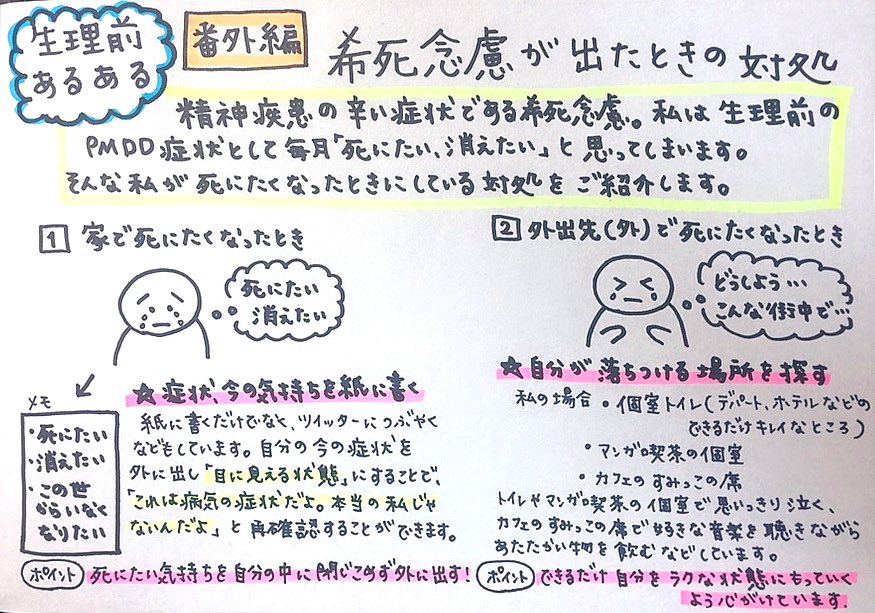 生理前
あるある
番外編
希死念慮が出たときの対処
精神疾患の辛い症状である希死念慮。私は生理前の
PMDD症状として毎月「死にたい、消えたい」と思ってしまいます。
そんな私が死にたくなったときにしている対処をご紹介します。
1 家で死にたくなったとき
死にたい
消えたい
☆症状、今の気持ちを紙に書く
メモ
・死にたい
・消えたい
・この世
からいなく
なりたい
紙に書くだけでなく、ツイッターにつぶやく
などもしています。自分の今の症状を
外に出し「目に見える状態」にすることで、
「これは病気の症状だよ。本当の私じゃ
ないんだよ」と再確認することができます。
ポイント 死にたい気持ちを自分の中に閉じこめず外に出す!
2 外出先(外)で死にたくなったとき
どうしよう…
こんな街中で…
☆自分が落ちつける場所を探す
私の場合 ・個室トイレ(デパート、ホテルなどの
できるだけキレイなところ)
・マンガ喫茶の個室
・カフェのすみっこの席
トイレやマンガ喫茶の個室で思いっきり泣く、
カフェのすみっこの席で好きな音楽を聴きながら
あたたかい物を飲むなどしています。
ポイント できるだけ自分をラクな状態にもっていく
よう心がけています。